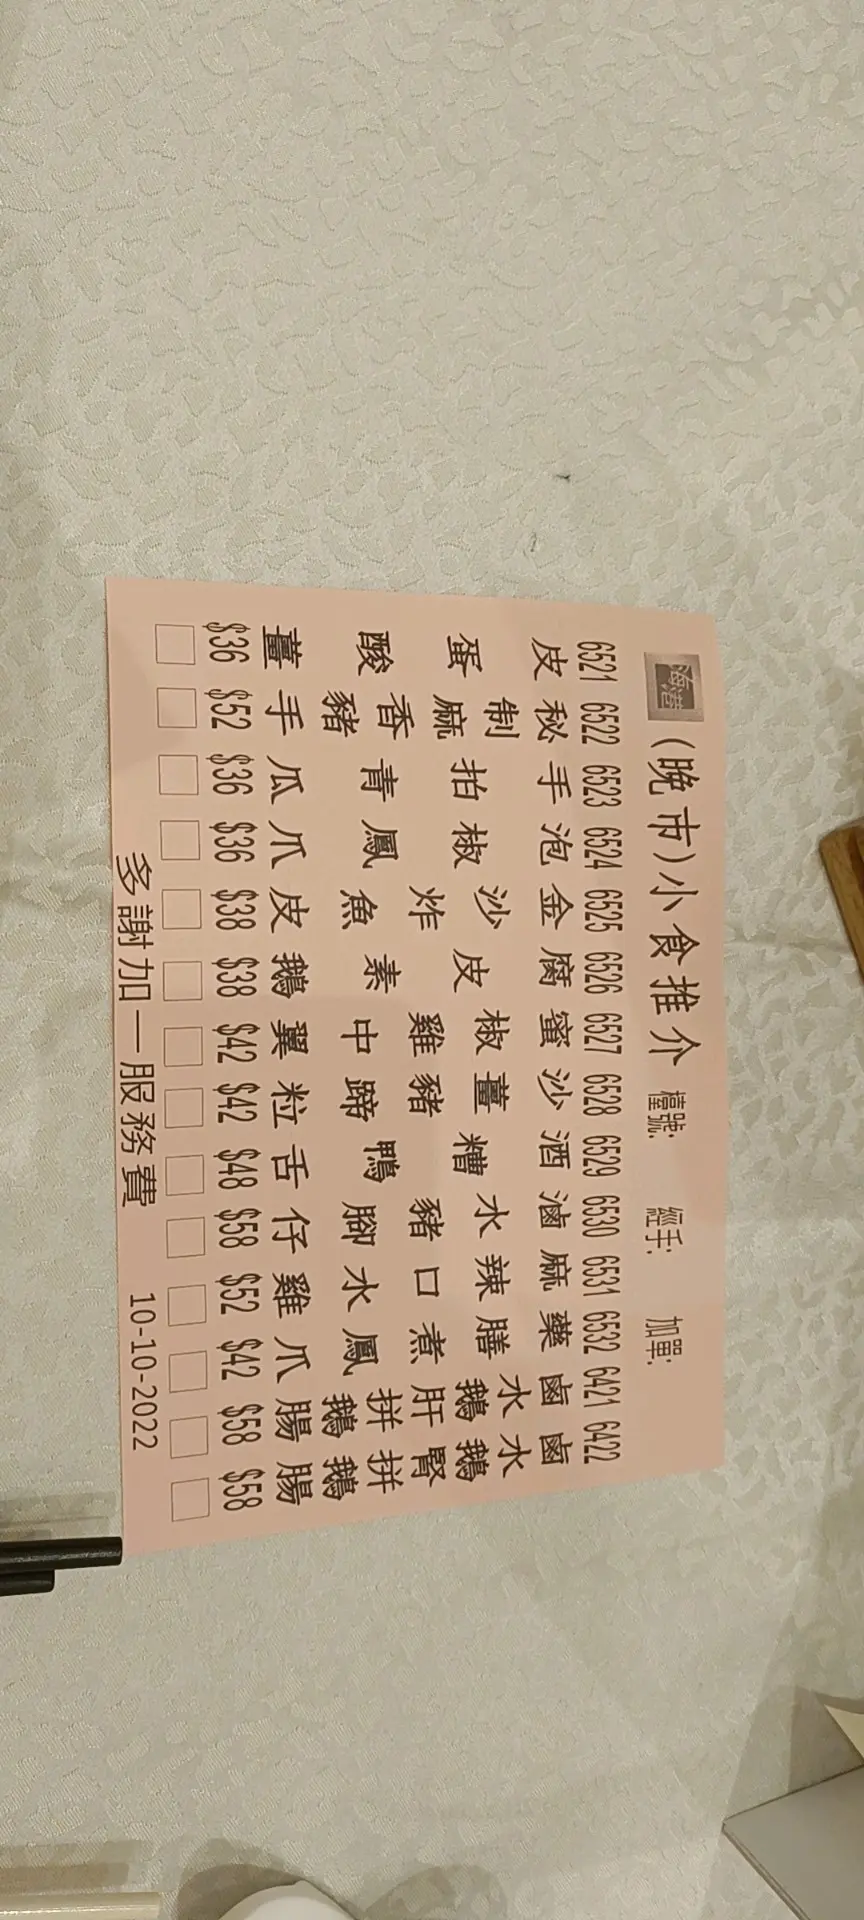 海港
(晚市)小食推介 檯號: 經手: 加單:
6521 皮蛋酸薑 $36
6522 秘制麻香豬手 $52
6523 手拍青瓜 $36
6524 泡椒鳳爪 $36
6525 金沙炸魚皮 $38
6526 腐皮素鵝 $38
6527 蜜椒雞中翼 $42
6528 沙薑豬蹄粒 $42
6529 酒糟鴨舌 $48
6530 滷水豬腳仔 $58
6531 麻辣口水雞 $52
6532 藥膳煮鳳爪 $42
6421 鹵水鵝肝拼鵝腸 $58
6422 鹵水鵝腎拼鵝腸 $58
多謝加一服務費 10-10-2022